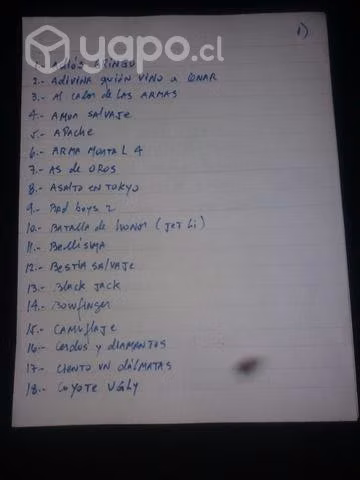 yapo.cl
1)
1.- Adiós Gringo
2.- Adivina quién vino a cenar
3.- Al calor de las armas
4.- Amor salvaje
5.- Apache
6.- Arma mortal 4
7.- As de oros
8.- Asalto en Tokyo
9.- Bad boys 2
10.- Batalla de honor (Jet Li)
11.- Bellísima
12.- Bestia salvaje
13.- Black Jack
14.- Bowfinger
15.- Camuflaje
16.- Cerdos y diamantes
17.- Ciento un dálmatas
18.- Coyote Ugly